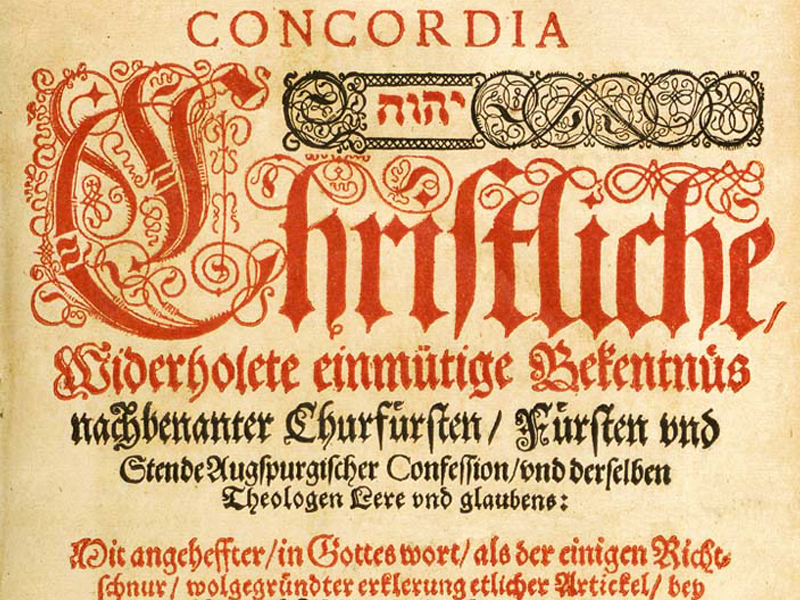 CONCORDIA
יהוה
Chriſtliche,
Widerholete einmütige Bekentnüs
nachbenanter Churfürſten / Fürſten vnd
Stende Augſpurgiſcher Confeſſion/vnd derſelben
Theologen Lere vnd glaubens:
Mit angeheffter/in Gottes wort/ als der einigen Richt⸗
ſchnur/ wolgegründter erklerung etlicher Artickel/ bey